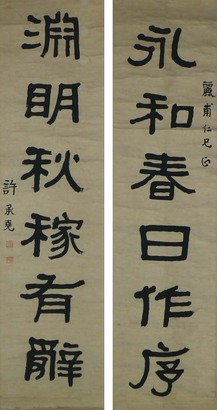 永和春日作序
麗甫仁兄正
淵明秋稼有辭
許承堯